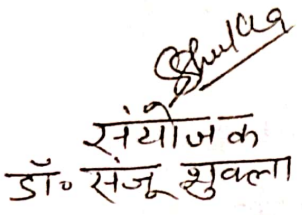 Shukla
संयोजक
डॉ॰ संजू शुक्ला